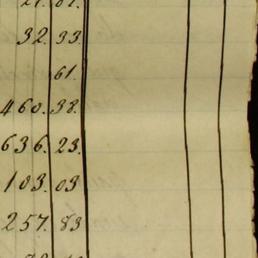 32. 33
61.
460. 38.
636. 23.
103. 03
257. 83